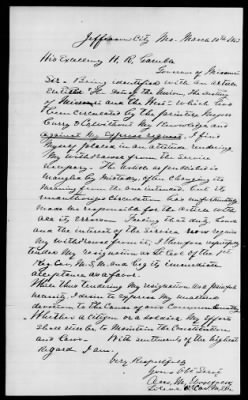 Jefferson City Mo. March 10th 1863
His Excellency H. R. Gamble
Governor of Missouri
Sir - Being identified with an article
entitled "The Union, the destiny
of Missouri and the West" which has
been circulated by the printers Messrs
Curry & without my knowledge and
against my express request, I find
myself placed in an attitude rendering
my withdrawal from the service
The article as published is
mangled by mistakes, often changing its
meaning from the one intended, but its
unauthorized circulation has unfortunately
made me responsible for the article with
all its errors. Feeling that duty
and the interest of the service now require
my withdrawal from it, I therefore respectfully
tender my resignation as Lt Col of the 1st
Reg Cav. M. S. M. and beg its immediate
acceptance as a favor.
While thus tendering my resignation as a painful
necessity, I desire to express my unaltered
devotion to the cause of our
Whether a citizen or a soldier my efforts
shall ever be to maintain the Constitution
and Laws. With sentiments of the highest
regard I am.
Very Respectfully
Your Obt Servt
M.
Lt Col 1st Cav. M.S.M.